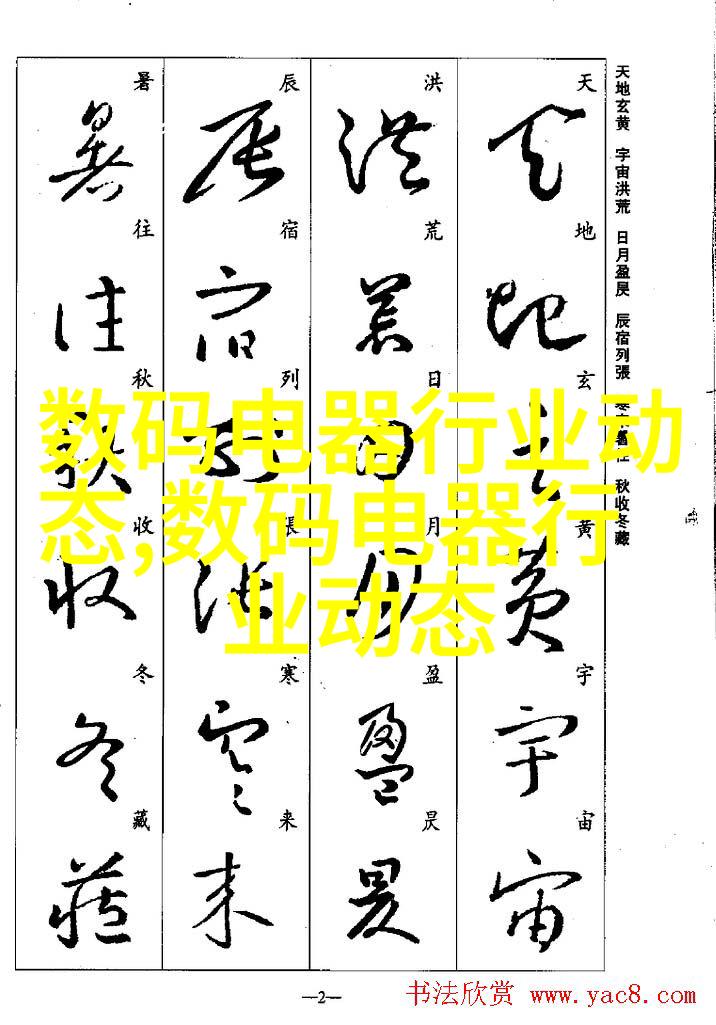 天地玄黄 宇宙洪荒 日月盈昃 辰宿列張 寒来暑往 秋收冬藏
天 地 玄 黄 宇 宙
天地玄黄宇宙
洪 荒 日 月 盈 昃
洪荒日月盈昃
辰 宿 列 張 寒 来
辰宿列張寒来
暑 往 秋 收 冬 藏
暑往秋收冬藏
数码电器行业动
态,数码电器行
业动态
—2—
书法欣赏 www.yac8.com